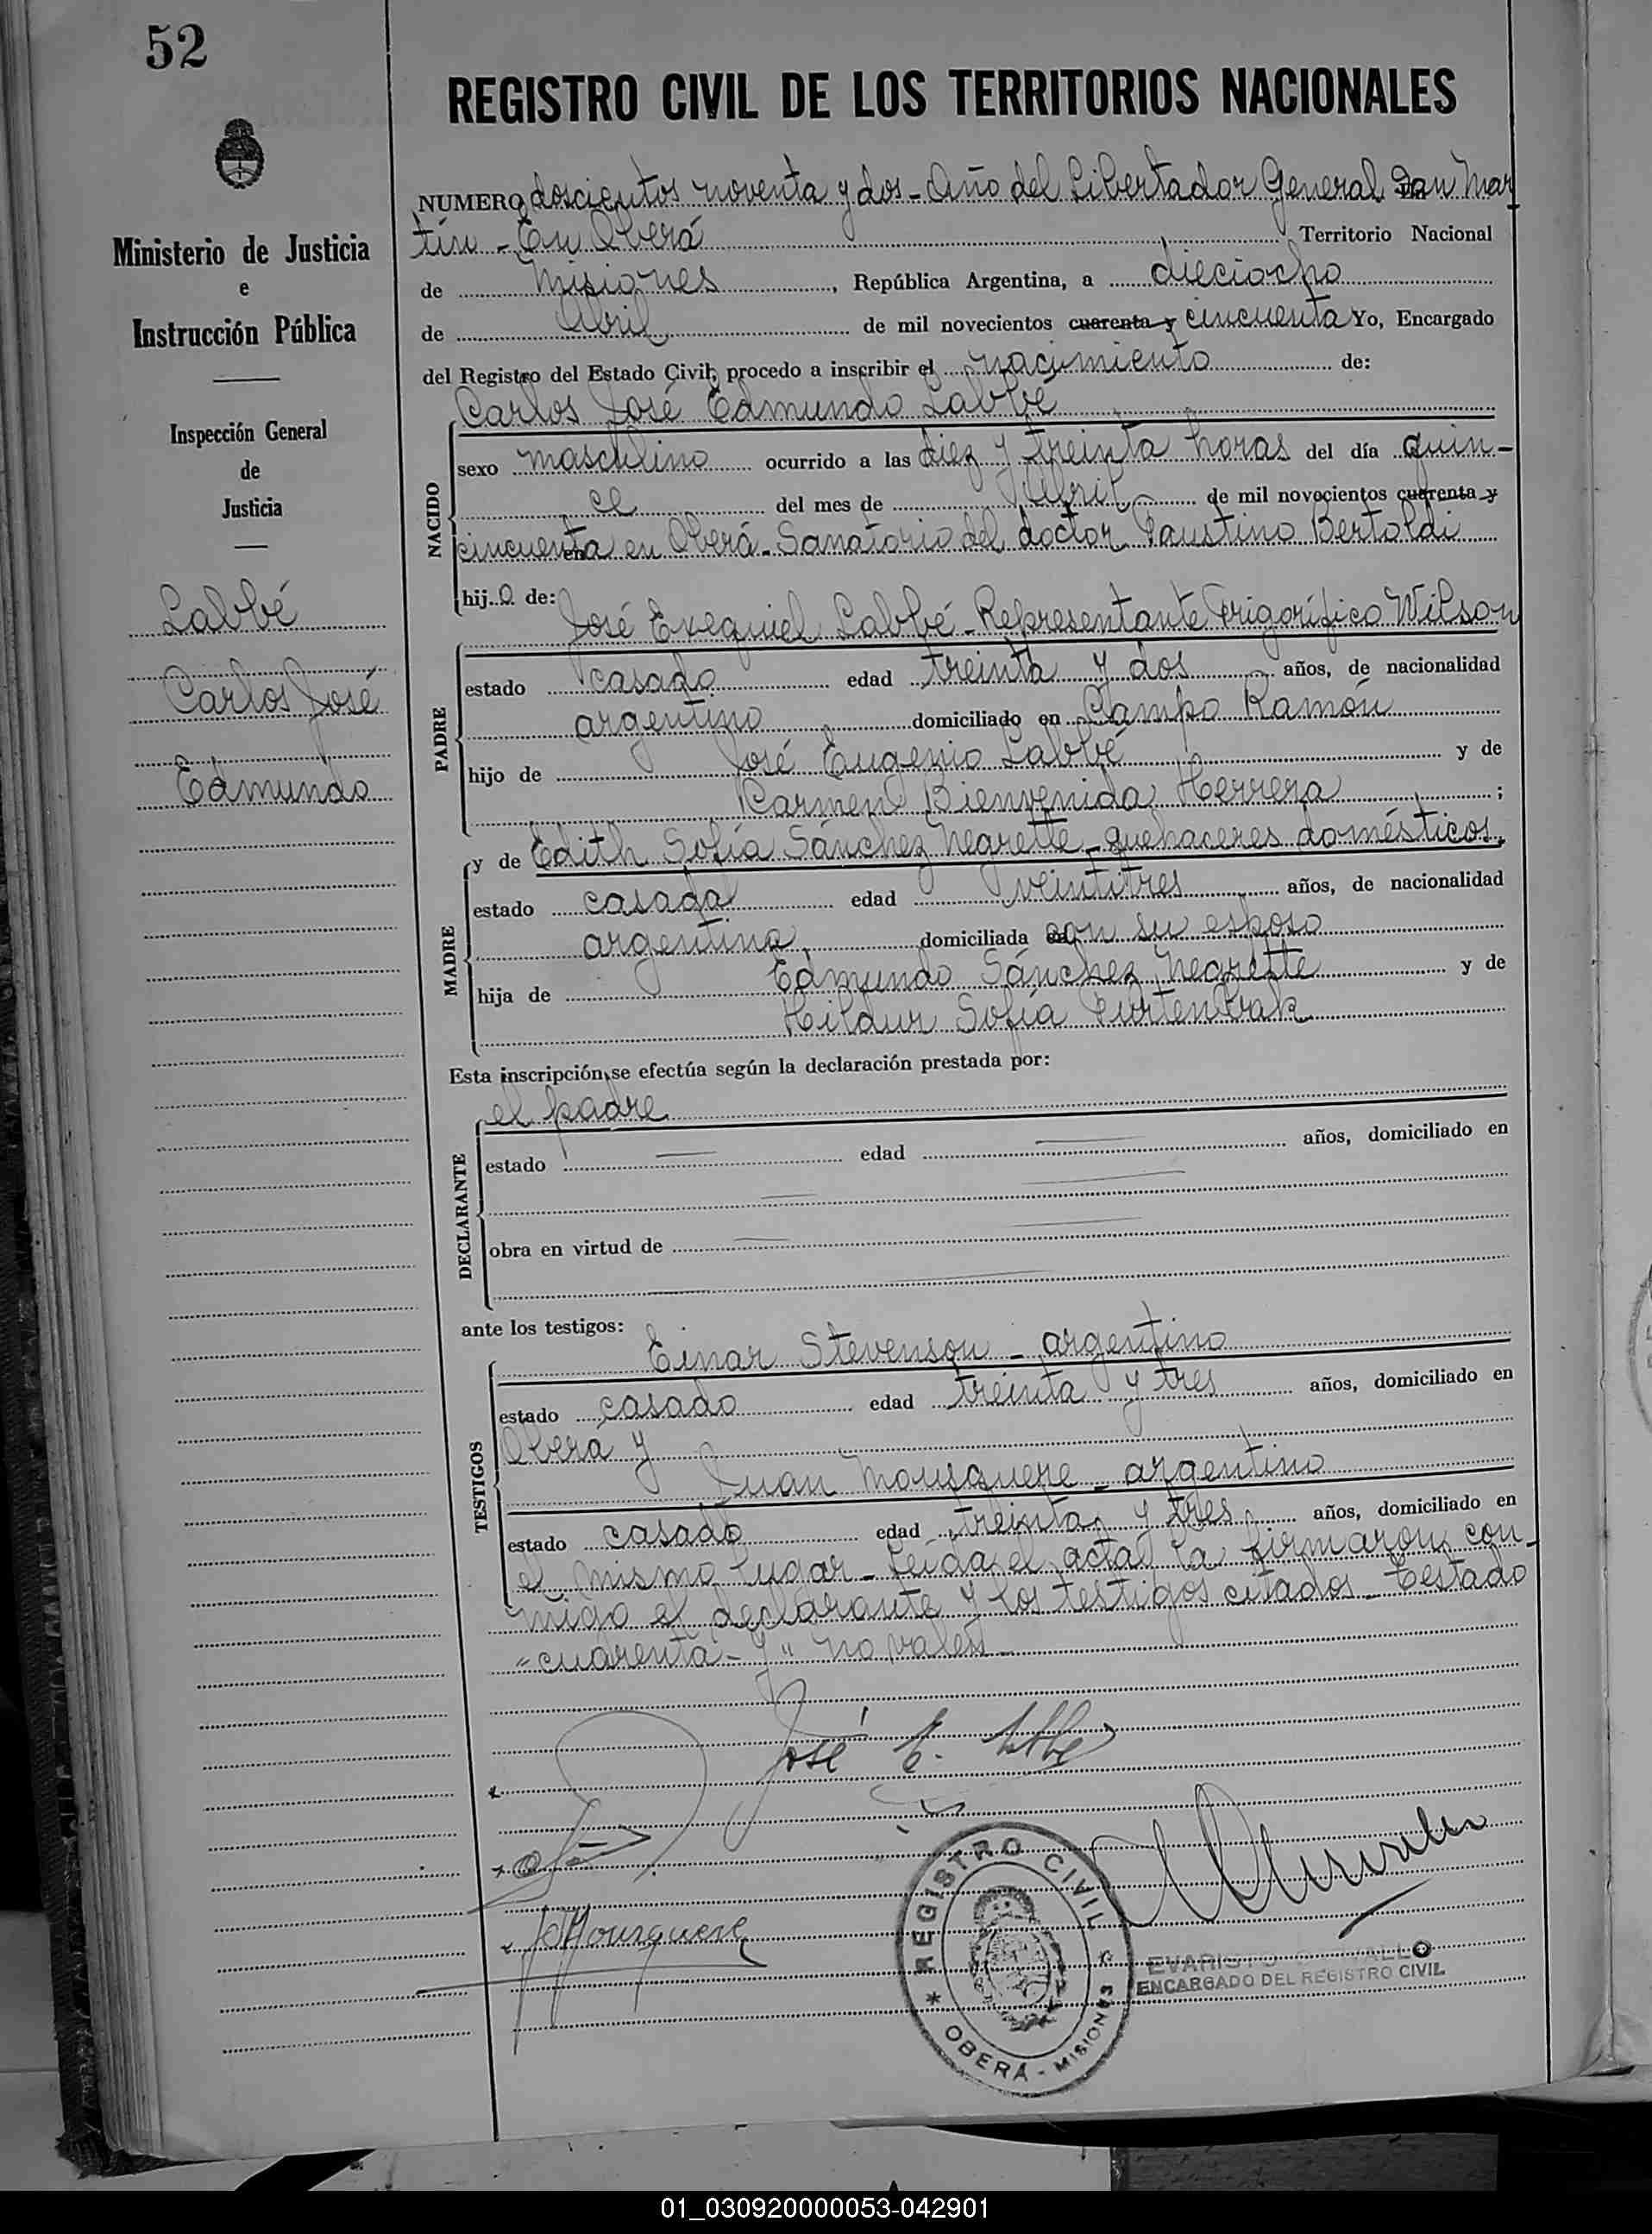 52
REGISTRO CIVIL DE LOS TERRITORIOS NACIONALES
Ministerio de Justicia
e
Instrucción Pública
Inspección General
de
Justicia
Labbé
Carlos José
Edmundo
NUMERO doscientos noventa y dos - Año del Libertador General San Mar
tín - En Oberá Territorio Nacional
de Misiones, República Argentina, a dieciocho
de Abril de mil novecientos cuarenta y cincuenta Yo, Encargado
del Registro del Estado Civil, procedo a inscribir el nacimiento de:
Carlos José Edmundo Labbé
NACIDO
sexo masculino ocurrido a las diez y treinta horas del día quin-
ce del mes de Abril de mil novecientos cuarenta y
cincuenta en Oberá - Sanatorio del doctor Faustino Bertoldi
hijo de:
José Exequiel Labbé - Representante Frigorífico Wilson
PADRE
estado casado edad treinta y dos años, de nacionalidad
argentino domiciliado en Campo Ramón
hijo de José Eugenio Labbé y de
Carmen Bienvenida Herrera ;
y de Edith Sofía Sánchez Negrette - quehaceres domésticos,
MADRE
estado casada edad veintitres años, de nacionalidad
argentina domiciliada con su esposo
hija de Edmundo Sánchez Negrette y de
Hildur Sofía
Esta inscripción se efectúa según la declaración prestada por:
el padre
DECLARANTE
estado — edad — años, domiciliado en
obra en virtud de —
ante los testigos:
Einar Stevenson - argentino
TESTIGOS
estado casado edad treinta y tres años, domiciliado en
Oberá y
Juan Mousquere - argentino
estado casado edad treinta y tres años, domiciliado en
el mismo lugar - Leída el acta la firmaron con-
migo el declarante y los testigos citados - Testado
"cuarenta - y" no valen
José E. Labbé
JMousquere
REGISTRO CIVIL
* OBERÁ - MISIONES *
EVARISTO
ENCARGADO DEL REGISTRO CIVIL
01_030920000053-042901